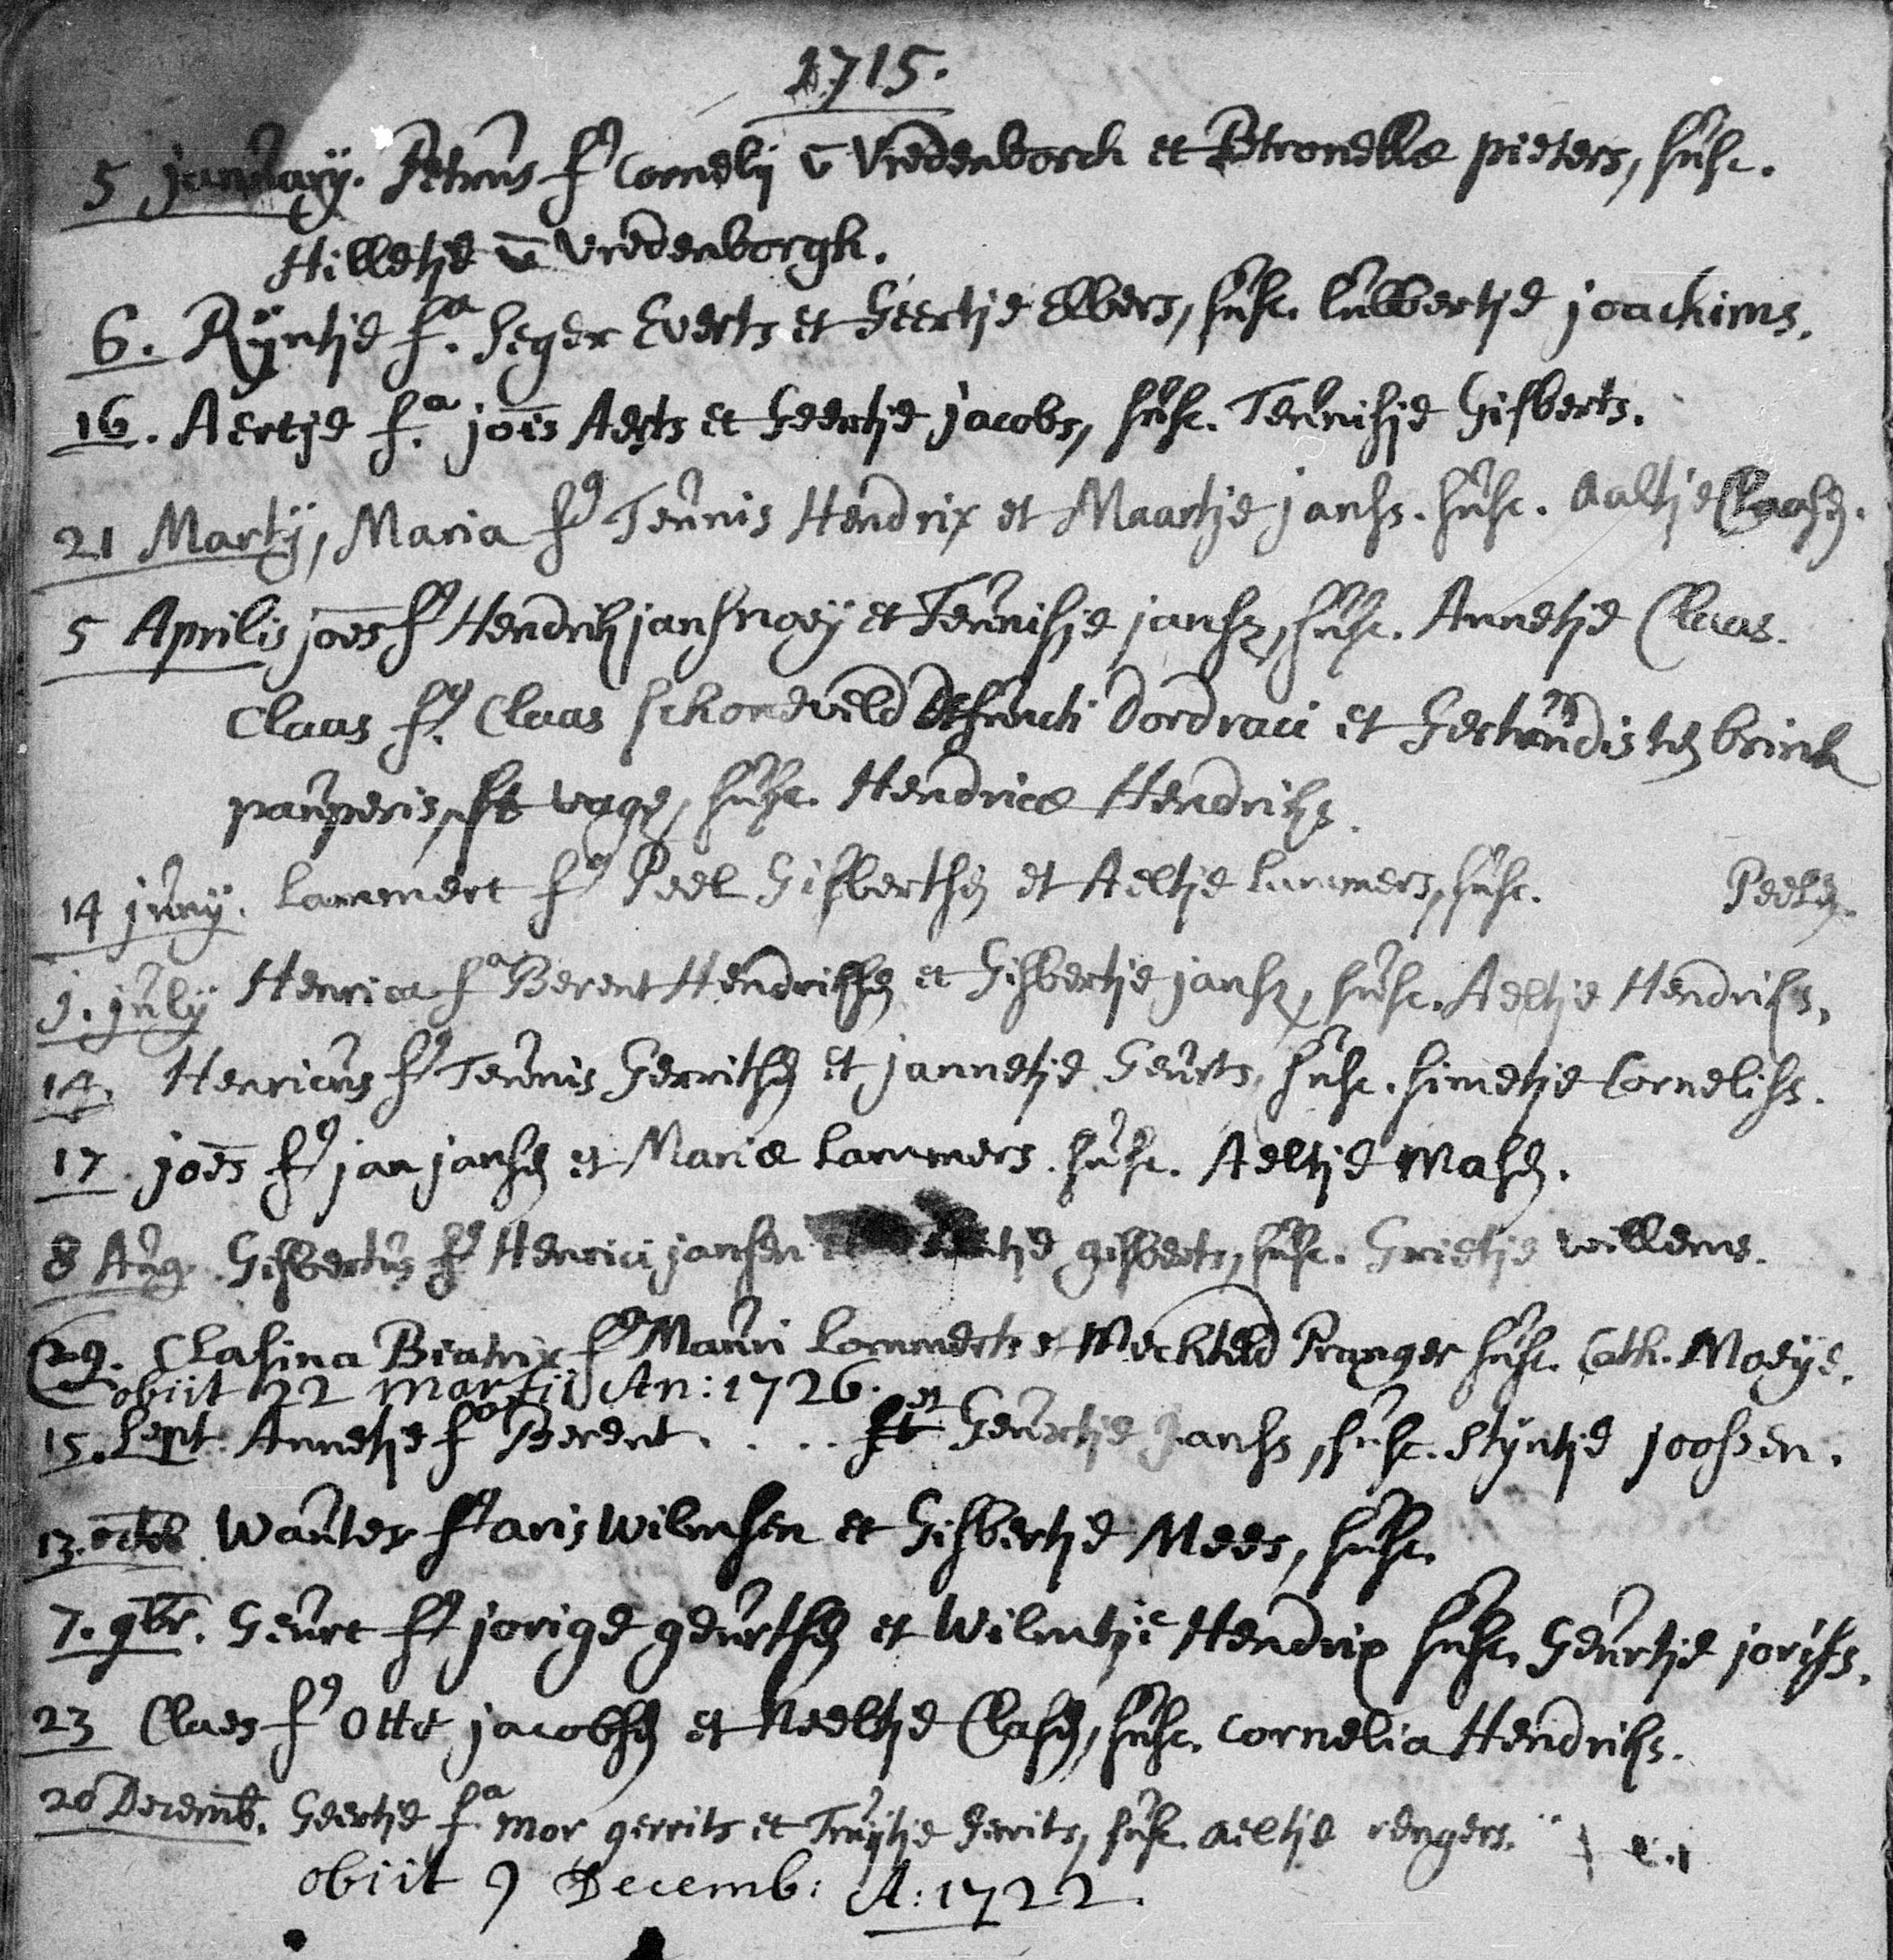 1715.
5 january. Petrus f⁹ Cornelij v̄ Vredenborch et Petronellæ pieters, susc.
Hilletje v̄ Vredenborgh.
6. Rÿntje f.ª Seger Everts et Geertje Elbers, susc. lubbertje joachims.
16. Aertje f.ª jois Aerts et Geertje jacobs, susc. Teunisje Gisberts.
21 Martÿ, Maria f⁹ Teunis Hendrix et Maartje janss. susc. Aaltje Claass.
5 Aprilis joēs f⁹ Hendrik jans noeÿ et Teunisje jansz, susc. Annetje Claas.
Claas f⁹. Claas schoneveld defuncti Dordraci et Gertrudis ten brinck
pauperis, et vagæ, susc. Hendricæ Hendriks.
14 junÿ. Lammert f⁹ Peel Gisberths et Aeltje lammers, susc. Peels.
9. julÿ Henrica fª Berent Hendrikss et Gisbertje jansz, susc. Aeltje Hendriks.
14. Henricus f⁹ Teunis Gerritss et jannetje Geurts, susc. simetje Corneliss.
17 joēs f⁹ jan janss et Mariæ Lammers. susc. Aeltje Mass.
8 Aug. Gisbertus f⁹ Henrici jansen et tje gisberts, susc. Grietje willems.
29. Clasina Beatrix fª Mauri Lammerts et Mechteld Pranger susc. Cath. Moeÿe.
obiit 22 Martii An: 1726.
15. Sept. Annetje fª Berent . . . . et Geurtje Janss, susc. stÿntje joosen.
13. octob. Wauter f⁹ aris Wilmsen et Gisbertje Mees, susc.
7. 9br. Geurt f⁹ jorige geurtss et Wilmtje Hendrix susc. Geurtje joriss.
23 Claes f⁹ Otto jacobss et Neeltje Class, susc. Cornelia Hendriks.
20 Decemb. Geertje fª mor gerrits et Truÿtje Gerrits, susc. aeltje rengers.
obiit 9 Decemb: A: 1722.